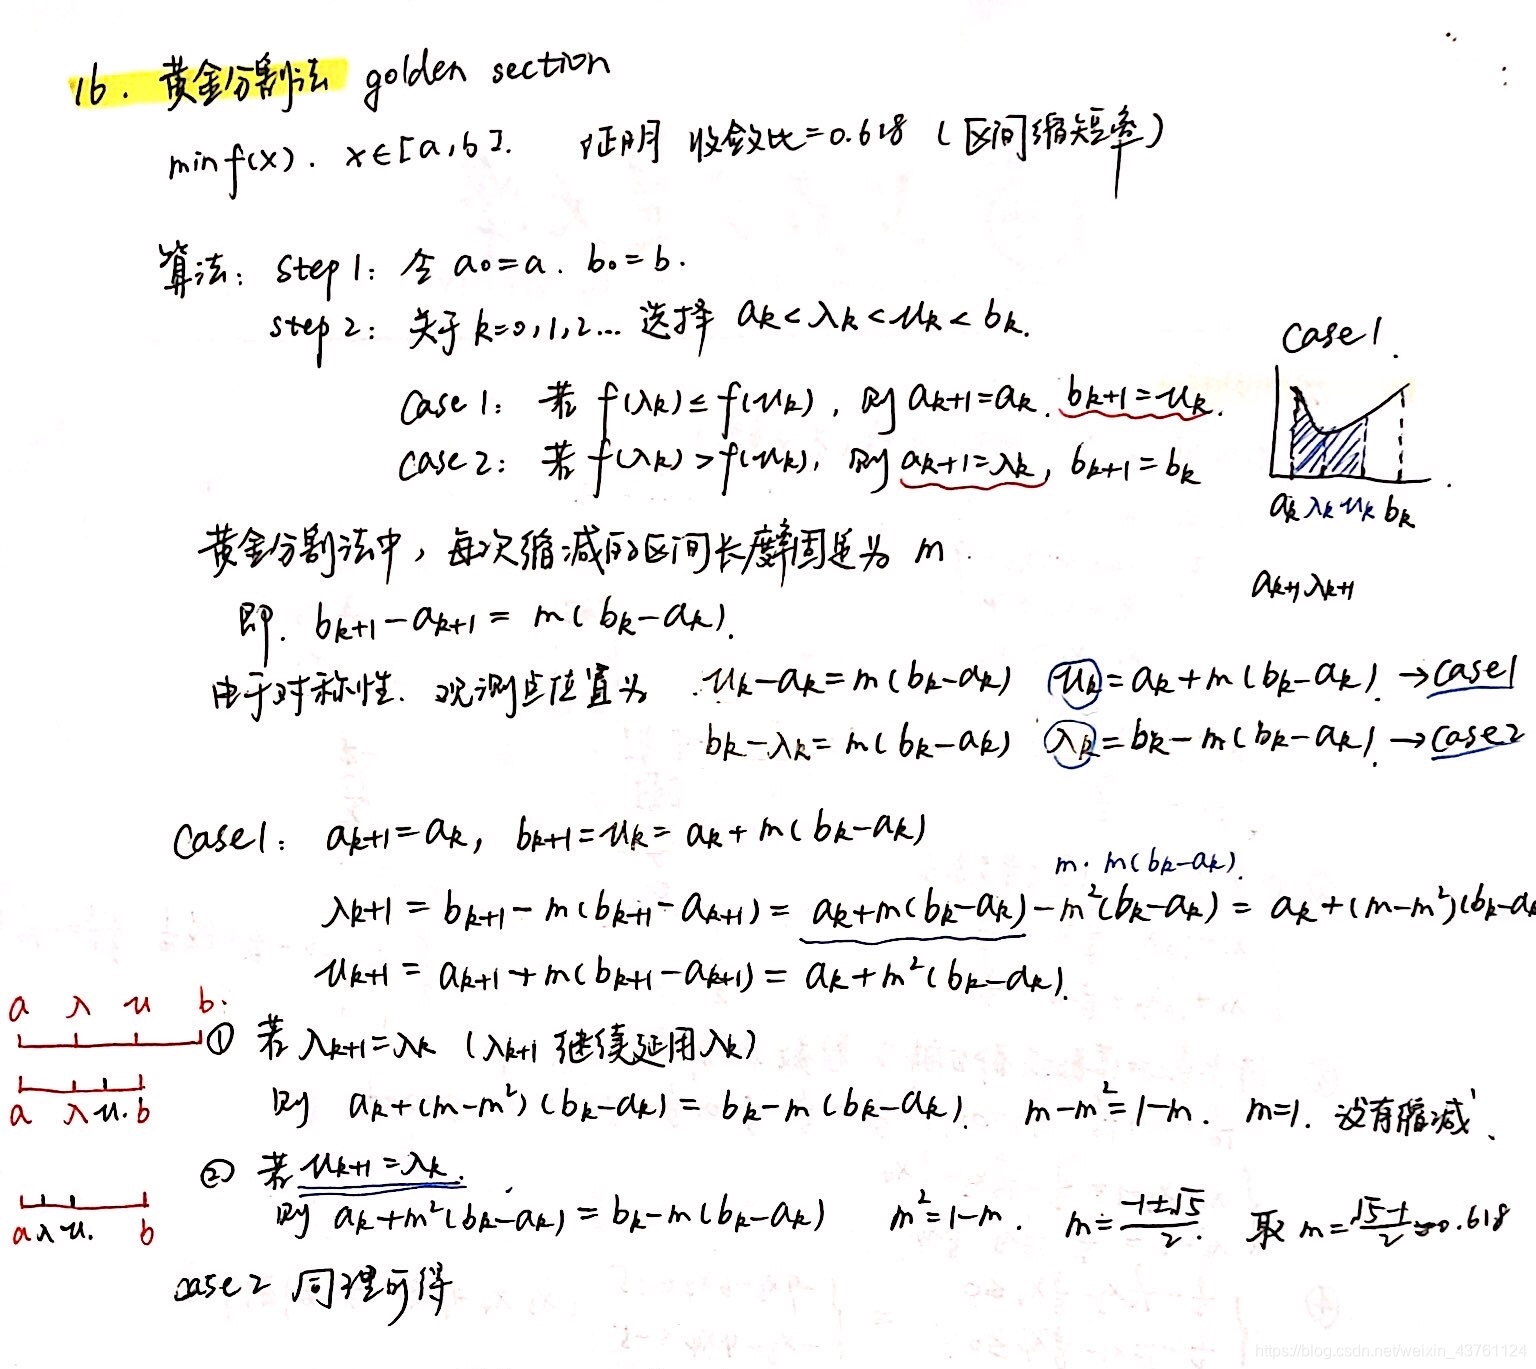 16. 黄金分割法 golden section
min f(x). x∈[a,b]. 证明 收敛比=0.618 (区间缩短率)
算法: step1: 令 a₀=a. b₀=b.
step2: 关于 k=0,1,2... 选择 aₖ<λₖ<uₖ<bₖ.
case1: 若 f(λₖ)≤f(uₖ), 则 aₖ₊₁=aₖ. bₖ₊₁=uₖ.
case2: 若 f(λₖ)>f(uₖ), 则 aₖ₊₁=λₖ, bₖ₊₁=bₖ
case1.
aₖ λₖ uₖ bₖ
aₖ₊₁ λₖ₊₁
黄金分割法中, 每次缩减的区间长度率固定为 m.
即. bₖ₊₁-aₖ₊₁=m(bₖ-aₖ).
由于对称性. 观测点位置为 uₖ-aₖ=m(bₖ-aₖ) uₖ=aₖ+m(bₖ-aₖ). →case1
bₖ-λₖ=m(bₖ-aₖ) λₖ=bₖ-m(bₖ-aₖ). →case2
case1: aₖ₊₁=aₖ, bₖ₊₁=uₖ=aₖ+m(bₖ-aₖ)
m·m(bₖ-aₖ).
λₖ₊₁=bₖ₊₁-m(bₖ₊₁-aₖ₊₁)=aₖ+m(bₖ-aₖ)-m²(bₖ-aₖ)=aₖ+(m-m²)(bₖ-aₖ
uₖ₊₁=aₖ₊₁+m(bₖ₊₁-aₖ₊₁)=aₖ+m²(bₖ-aₖ).
a λ u b
① 若 λₖ₊₁=λₖ (λₖ₊₁ 继续延用λₖ)
a λ u. b
则 aₖ+(m-m²)(bₖ-aₖ)=bₖ-m(bₖ-aₖ). m-m²=1-m. m=1. 没有缩减.
② 若 uₖ₊₁=λₖ.
a λ u. b
则 aₖ+m²(bₖ-aₖ)=bₖ-m(bₖ-aₖ) m²=1-m. m=(-1±√5)/2. 取 m=(√5-1)/2≈0.618
case2 同理可得
https://blog.csdn.net/weixin_43761124